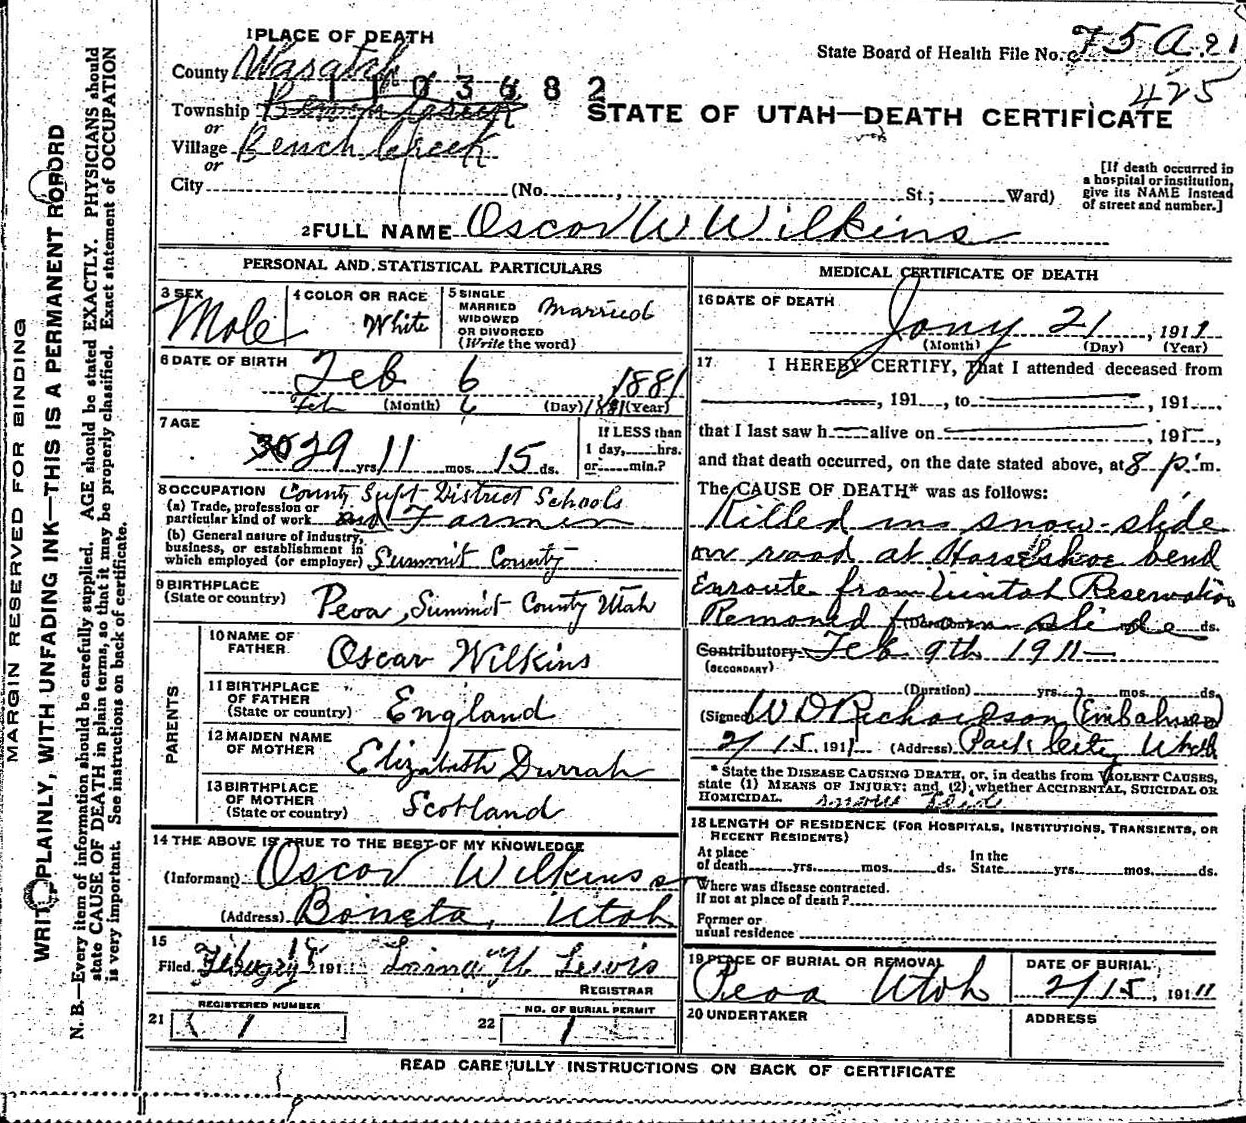 MARGIN RESERVED FOR BINDING
WRITE PLAINLY, WITH UNFADING INK—THIS IS A PERMANENT RECORD
N. B.—Every item of information should be carefully supplied. AGE should be stated EXACTLY. PHYSICIANS should
state CAUSE OF DEATH in plain terms, so that it may be properly classified. Exact statement of OCCUPATION
is very important. See instructions on back of certificate.
1 PLACE OF DEATH
State Board of Health File No. 75A.21
425
County Wasatch
1103682
Township Bench Creek
or
STATE OF UTAH—DEATH CERTIFICATE
Village Bench Creek
or
City (No. , St.; Ward)
[If death occurred in
a hospital or institution,
give its NAME instead
of street and number.]
2 FULL NAME Oscar W Wilkins
PERSONAL AND STATISTICAL PARTICULARS
3 SEX
Male
4 COLOR OR RACE
White
5 SINGLE
MARRIED
WIDOWED
OR DIVORCED
(Write the word)
Married
6 DATE OF BIRTH
Feb 6 1881
Feb (Month) 6 (Day) 1881 (Year)
7 AGE
30 29 yrs. 11 mos. 15 ds.
If LESS than
1 day, hrs.
or min.?
8 OCCUPATION County Supt District Schools
(a) Trade, profession or
particular kind of work and Farmer
(b) General nature of industry,
business, or establishment in
which employed (or employer) Summit County
9 BIRTHPLACE
(State or country) Peoa, Summit County Utah
PARENTS
10 NAME OF
FATHER Oscar Wilkins
11 BIRTHPLACE
OF FATHER
(State or country) England
12 MAIDEN NAME
OF MOTHER Elizabeth Durrah
13 BIRTHPLACE
OF MOTHER
(State or country) Scotland
14 THE ABOVE IS TRUE TO THE BEST OF MY KNOWLEDGE
(Informant) Oscar Wilkins
(Address) Boneta, Utah
15
Filed 191 Lewis
REGISTRAR
REGISTERED NUMBER
21 1
NO. OF BURIAL PERMIT
22 1
MEDICAL CERTIFICATE OF DEATH
16 DATE OF DEATH
Jany 21, 1911
(Month) (Day) (Year)
17 I HEREBY CERTIFY, That I attended deceased from
, 191 , to , 191 ,
that I last saw h alive on , 191 ,
and that death occurred, on the date stated above, at 8 p. m.
The CAUSE OF DEATH* was as follows:
Killed in snow-slide
on road at Horseshoe bend
Enroute from Uintah Reservation
Removed from slide (Duration) ds.
Contributory Feb 9th 1911
(SECONDARY)
(Duration) yrs. mos. ds.
(Signed) W D Richardson (Embalmer)
2/15, 1911 (Address) Park City Utah
* State the DISEASE CAUSING DEATH, or, in deaths from VIOLENT CAUSES,
state (1) MEANS OF INJURY; and (2) whether ACCIDENTAL, SUICIDAL OR
HOMICIDAL. snow slide
18 LENGTH OF RESIDENCE (FOR HOSPITALS, INSTITUTIONS, TRANSIENTS, OR
RECENT RESIDENTS)
At place
of death yrs. mos. ds.
In the
State yrs. mos. ds.
Where was disease contracted.
if not at place of death?
Former or
usual residence
19 PLACE OF BURIAL OR REMOVAL
Peoa Utah
DATE OF BURIAL
2/15, 1911
20 UNDERTAKER
ADDRESS
READ CAREFULLY INSTRUCTIONS ON BACK OF CERTIFICATE